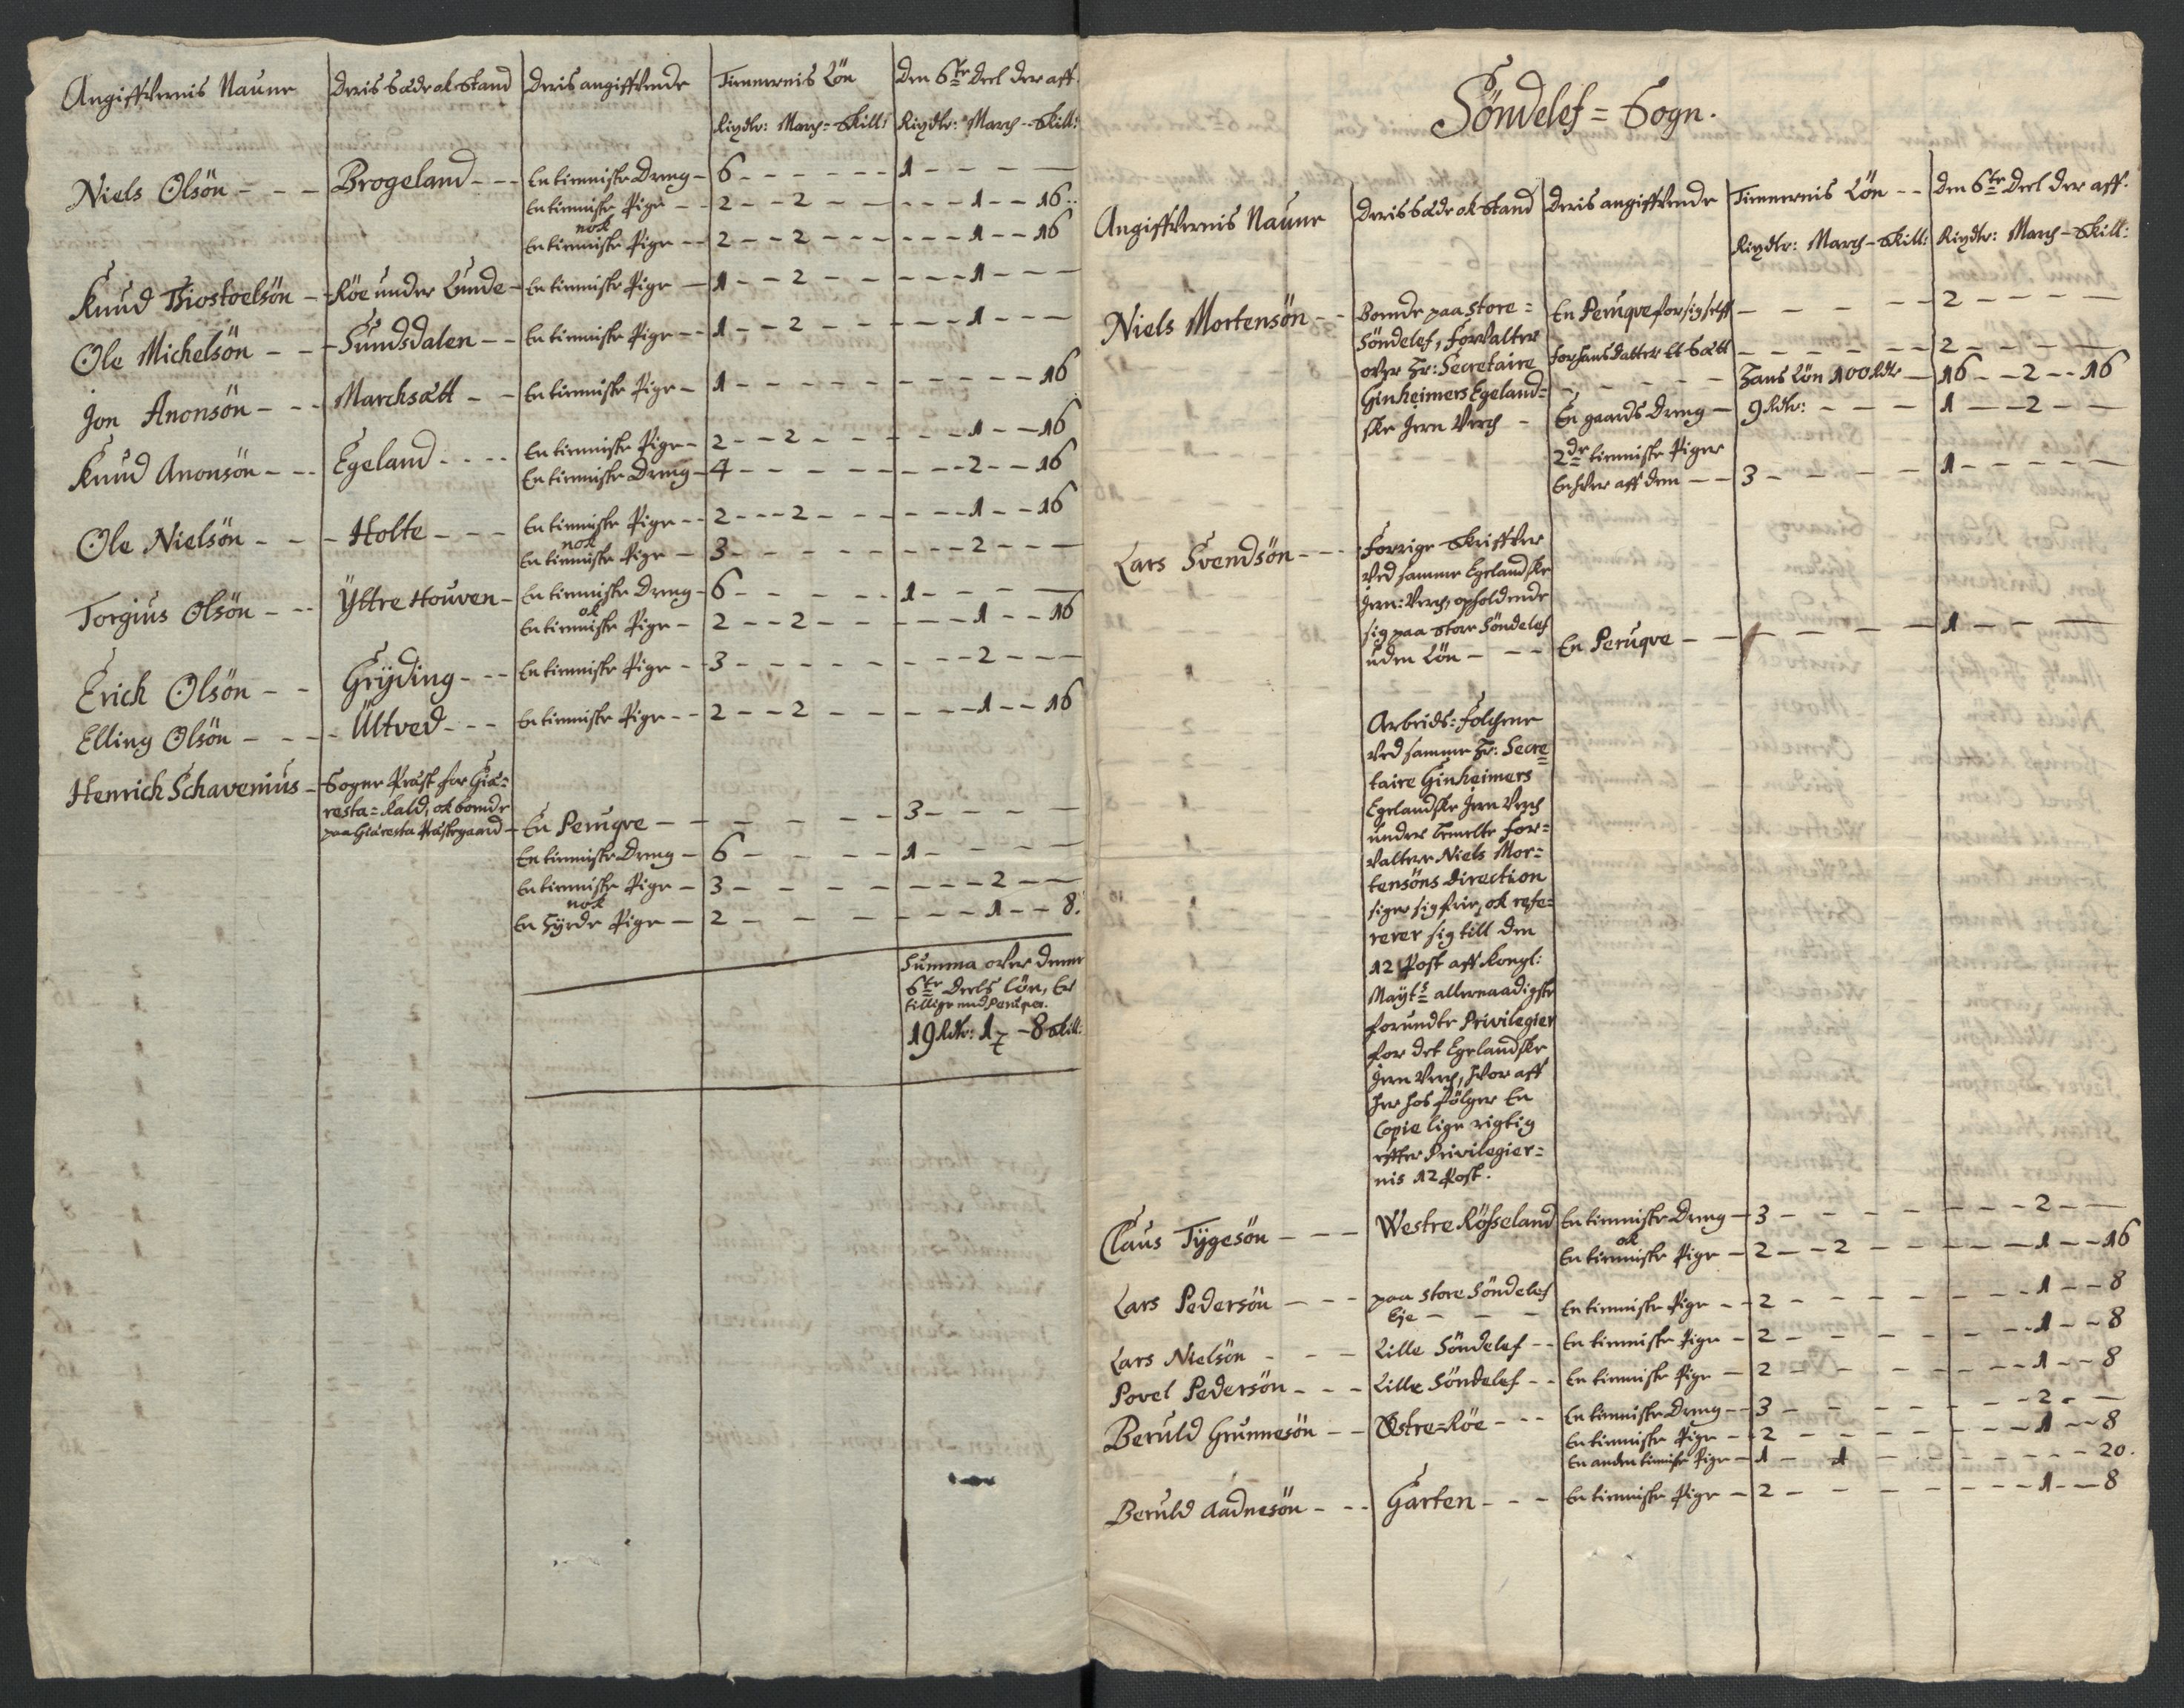 Angiffvernis Naune Deris Sæde ok Stand Deris angiffvende Tienernis Lön Den 6te Deel der aff.
Rixdlr: March- Skill: Rixdlr: March- Skill:
Niels Olsön - - - Brogeland - - - En tienniste Dreng - 6 - - - - - - 1 - - - -
En tienniste Pige - - 2 - - 2 - - - - - 1 - - 16 ..
nok
En tienniste Pige - - 2 - - 2 - - - - - - 1 - - 16
Knud Tiostoelsön - - Röe under Lunde - En tienniste Pige - 1 - - 2 - - - - - 1 - - -
Ole Michelsön - - - Sundsdalen - - En tienniste Pige - - 1 - - 2 - - - - - - 1 - - -
Jon Anonsön - - - Marchsætt - - En tienniste Pige - 1 - - - - - - - - - - 16
Knud Anonsön - - - Egeland - - - - En tienniste Pige - 2 - - 2 - - - - - 1 - - 16
En tienniste Dreng - 4 - - - - - - - - 2 - - 16
Ole Nielsön - - - Holte - - - En tienniste Pige - - 2 - - - 2 - - - - - - 1 - - 16
nok
En tienniste Pige - 3 - - - - - - - - 2 - - -
Torgius Olsön - - - Yttre Houven - En tienniste Dreng - 6 - - - - - 1 - - - -
ok
En tienniste Pige - 2 - - 2 - - - - - 1 - - 16
Erich Olsön - - Gryding - - - En tienniste Pige - - 3 - - - - - - - - - 2 - - -
Elling Olsön - - - - Ultved - - - En tienniste Pige - - 2 - - 2 - - - - - - 1 - - 16
Henrich Schavenius - Sogne Præst for Giæ=
resta = Kald, ok boende
paa Giæresta Præstegaard - En Peruqve - - - - - - 3 - - - -
En tienniste Dreng - 6 - - - - 1 - - - -
En tienniste Pige - 3 - - - - - - - 2 - - -
nok
En Hyrde Pige - 2 - - - - - - - 1 - - 8.
Summa over denne
6te Deels Lön, Er
tillige med Peruqver.
19 Rdlr: 1 - 8 Skill:
Söndelef = Sogn.
Angiffvernis Naune Deris Sæde ok Stand Deris angiffvende Tienernis Lön - - Den 6te Deel der aff.
Rixdlr: March - Skill: Rixdlr: March - Skill:
Niels Mortensön - - Boende paa Store = En Peruqve for sig selff - - - - - 2 - - - - -
Söndelef, Forvalter for hans datter et Sætt - - - - - - - 2 - - - -
over Hr: Secretaire - - - - - Hans Lön 100 Rdlr - 16 - - 2 - - 16
Ginheimers Egeland= En gaards Dreng - 9 Rdlr: - - - 1 - - - 2 - -
ske Jern Verch - 2de tienniste Piger
En hver aff dem - - 3 - - - - - 1 - - - - -
Lars Svendsön - - - Forrige Skriffver
ved samme Egelandske
Jern: Verch, opholdende
sig paa Store Söndelef
uden Lön - - - - En Peruqve - - - - - - - 1 - - - -
Arbeids: Folchene
ved samme Hr: Secre=
taire Ginheimers
Egelandske Jern Verch
under bemelte For=
valter Niels Mor=
tensöns direction
siger sig frie, ok refe=
rerer sig till den
12 Post aff Kongl:
Mayts allernaadigste
forundte Privilegier
for det Egelandske
Jern Verch, hvor aff
her hos fölger En
Copie lige rigtig
effter Privilegier=
nis 12 Post.
Claus Tygesön - - - Westre Rösseland En tienniste Dreng - 3 - - - - - - - - 2 - - -
ok
En tienniste Pige - 2 - - 2 - - - - - - 1 - - 16
Lars Pedersön - - - paa Store Söndelef
Eje - - - En tienniste Pige - - 2 - - - - - - - - 1 - - 8
Lars Nielsön - - - Lille Söndelef - - En tienniste Pige - 2 - - - - - - - - 1 - - 8
Povel Pedersön - - - Lille Söndelef - - En tienniste Pige - 2 - - - - - - - 1 - - 8
Beruld Grunnesön - - Östre=Röe - - - En tienniste Dreng - - 3 - - - - - - - - 2 - -
En tienniste Pige - - 2 - - - - - - - - 1 - - 8
En anden tienniste Pige - 1 - 1 - - - - - - - - 20.
Beruld Aadnesön - - - Garten - - - En tienniste Pige - 2 - - - - - - - - 1 - - 8